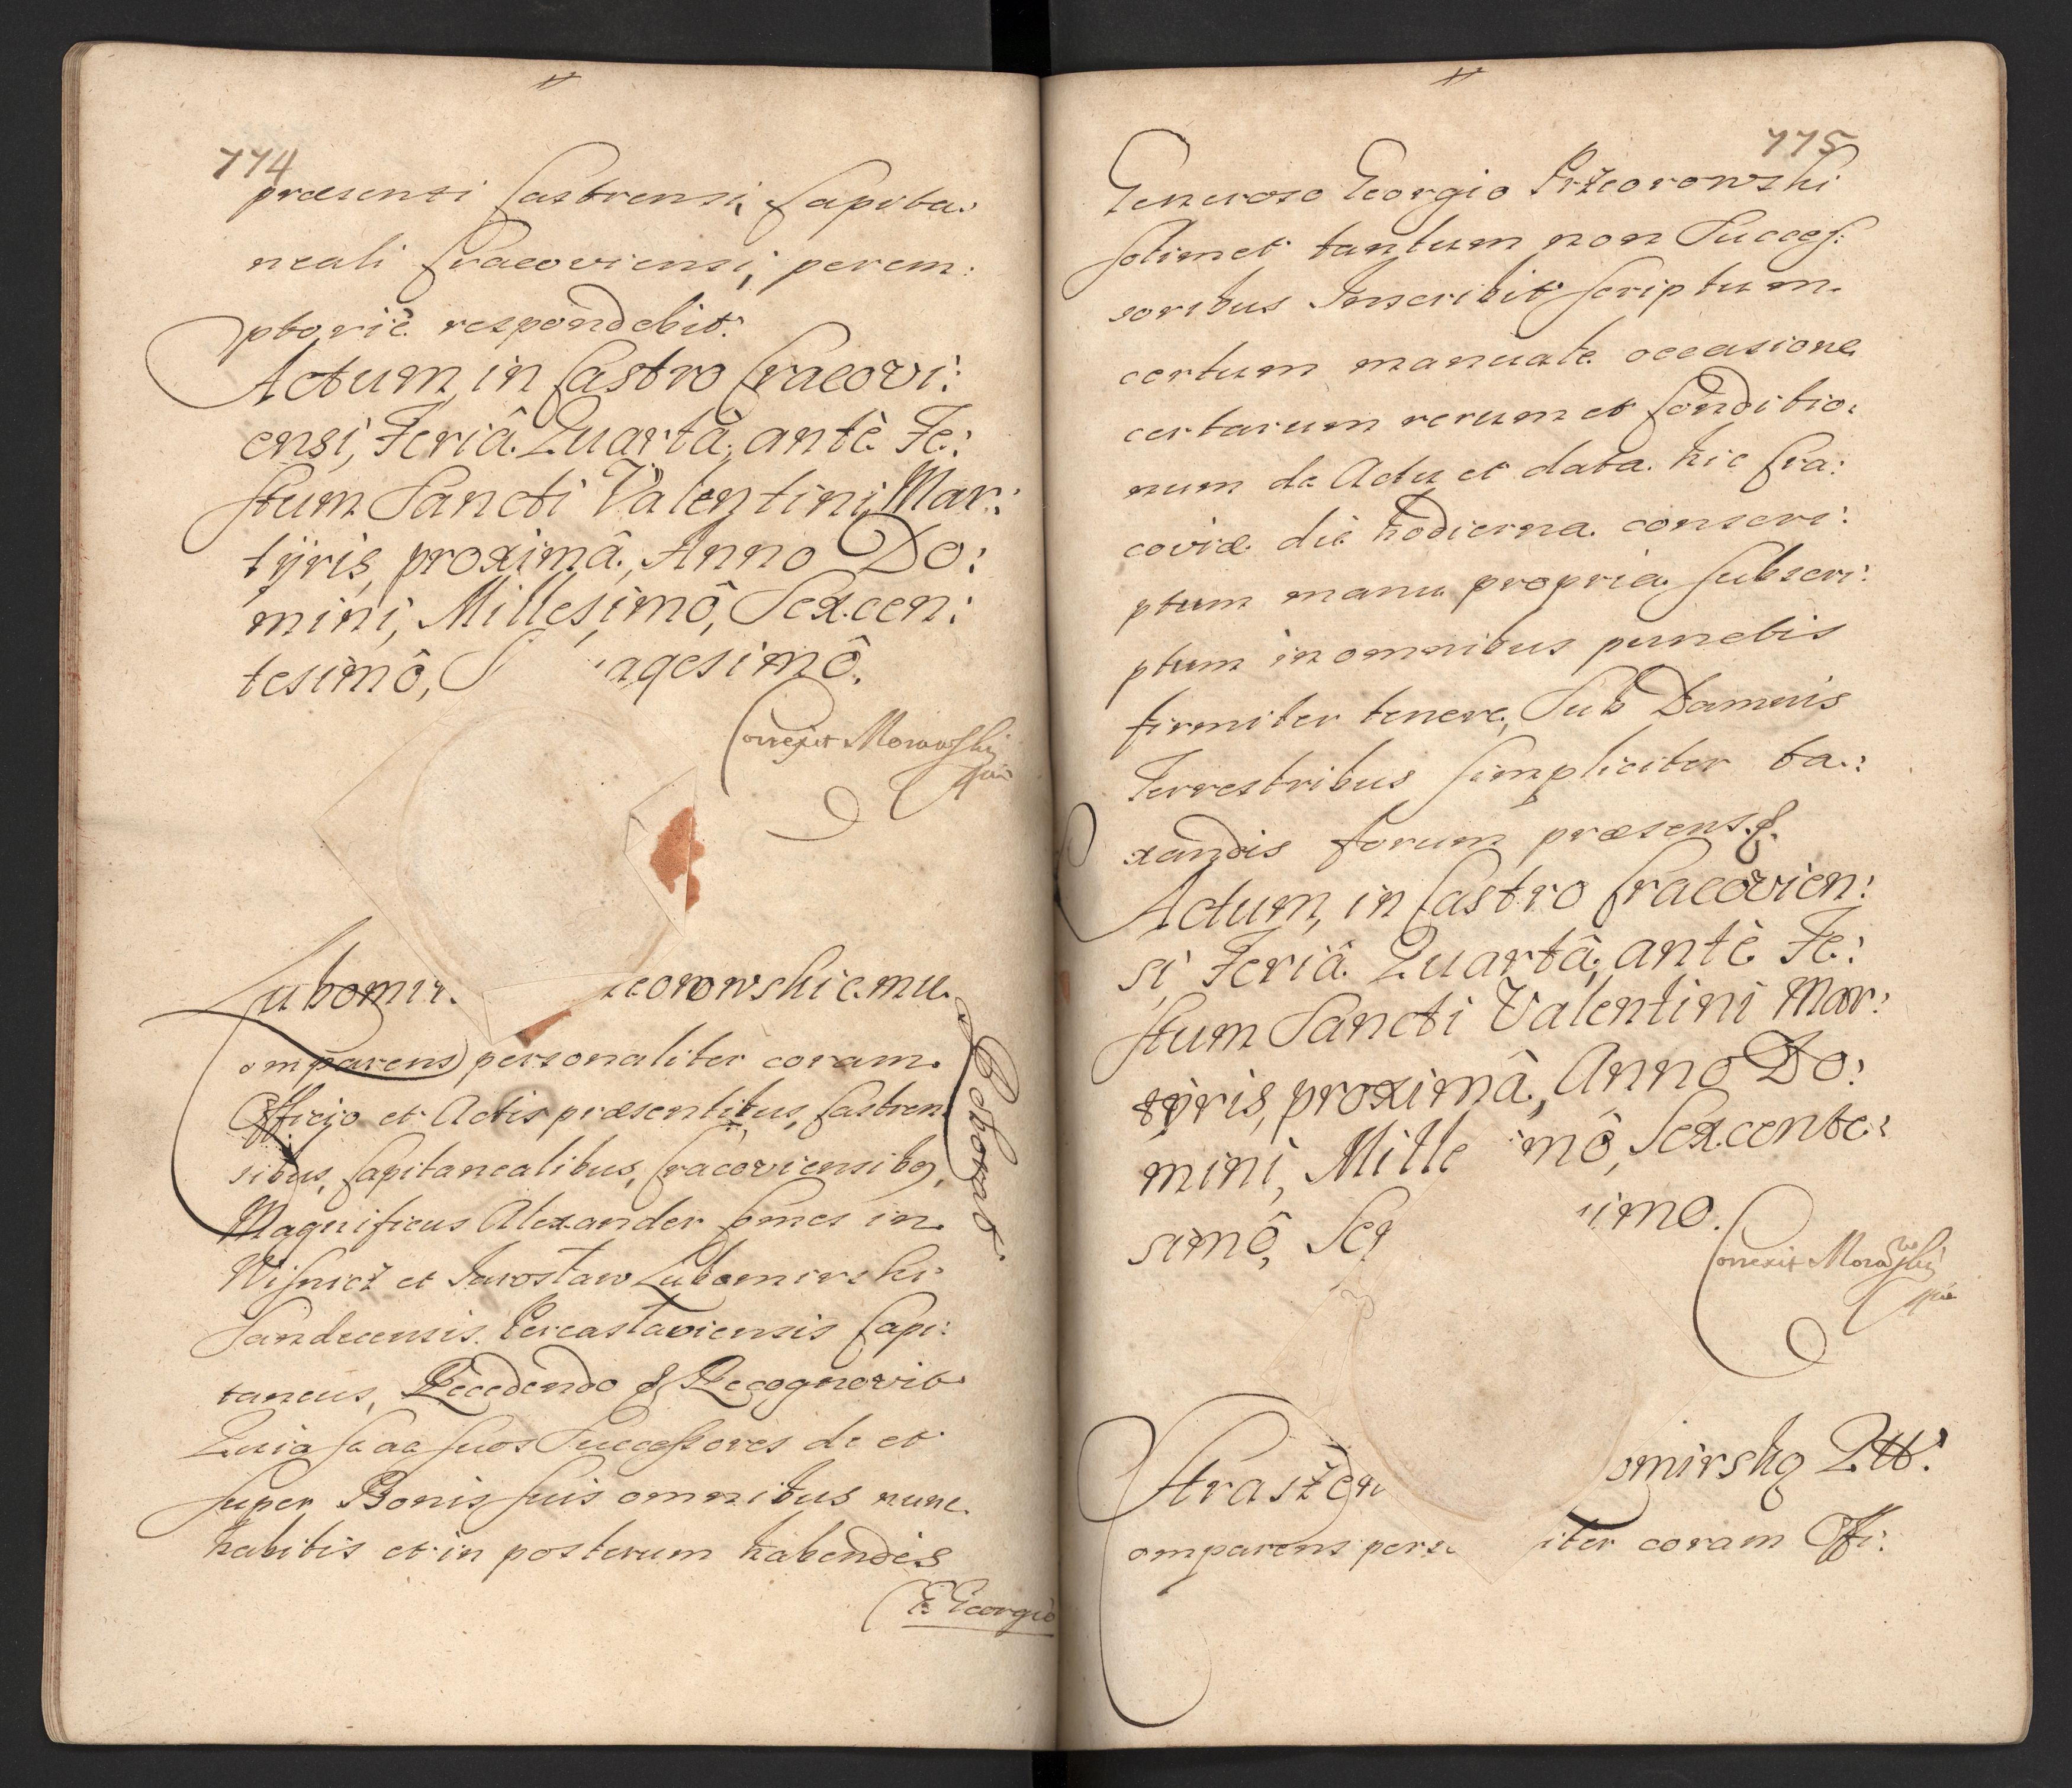 774
præsenti Castrensi, Capita:
neali Cracoviensi, perem:
ptoriè respondebit.
Actum, in Castro Cracovi:
ensi, Feriâ Quartâ, antè Fe:
stum Sancti Valentini, Mar:
tÿris, proximâ, Anno Do:
mini, Millesimô, Sexcen:
tesimô, S agesimô.
Correxit Morawski
mp
Lubomir. zeorowskiemu
Roborat
Comparens personaliter coram
Officio et Actis præsentibus, Castren
sibus, Capitanealibus, Cracoviensibq,
Magnificus Alexander Comes in
Wisnicz et Jarosław Lubomirski
Sandecensis Pereasłaviensis Capi:
taneus, Recedendo & Recognovit
Quia se ac suos Successores de et
super Bonis suis omnibus nunc
habitis et in posterum habendis
G. Georgio
775
Generoso Georgio Przeorowski
solimet tantum non Succes:
soribus Inscribit scriptum
certum manuale occasione
certarum rerum et Conditio:
num de Actu et data hic Cra:
coviæ die hodierna conscri:
ptum manu propria subscri:
ptum in omnibus punctis
firmiter tenere, Sub Damnis
Terrestribus simpliciter ta:
xandis forum præsens &.
Actum, in Castro Cracovien:
si, Feriâ Quartâ, antè Fe:
stum Sancti Valentini Mar:
tÿris, proximâ, Anno Do:
mini, Mille imô, Sexcente:
simô, Sep imo.
Correxit Morawski
mp
Straszew omirskg Qtt.
Comparens perso iter coram Offi: